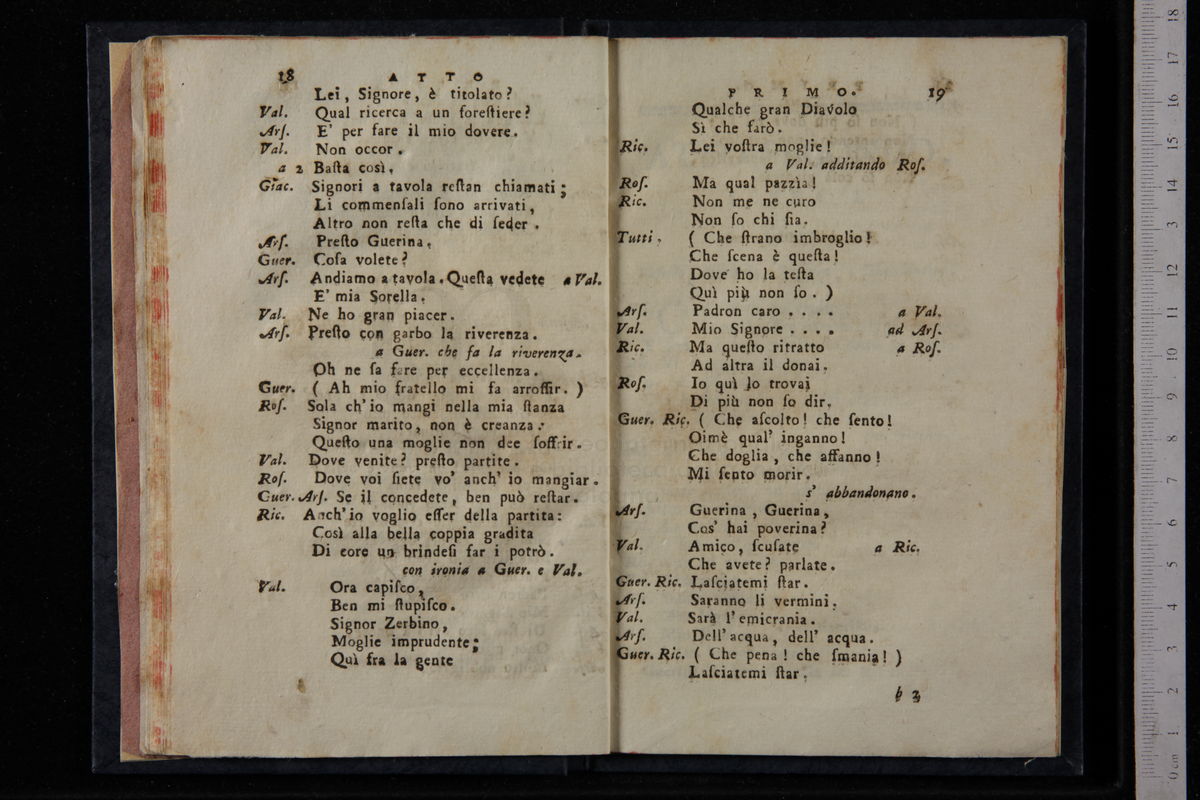 18 ATTO
Lei, Signore, è titolato?
Val. Qual ricerca a un foreſtiere?
Arſ. E' per fare il mio dovere.
Val. Non occor.
a 2 Baſta così.
Giac. Signori a tavola reſtan chiamati;
Li commenſali ſono arrivati,
Altro non reſta che di ſeder.
Arſ. Preſto Guerina,
Guer. Coſa volete?
Arſ. Andiamo a tavola. Queſta vedete a Val.
E' mia Sorella.
Val. Ne ho gran piacer.
Arſ. Preſto con garbo la riverenza.
a Guer. che fa la riverenza.
Oh ne ſa fare per eccellenza.
Guer. ( Ah mio fratello mi fa arroſſir. )
Roſ. Sola ch'io mangi nella mia ſtanza
Signor marito, non è creanza:
Queſto una moglie non dee ſoffrir.
Val. Dove venite? preſto partite.
Roſ. Dove voi ſiete vo' anch' io mangiar.
Guer. Arſ. Se il concedete, ben può reſtar.
Ric. Anch'io voglio eſſer della partita:
Così alla bella coppia gradita
Di core un brindeſi far i potrò.
con ironia a Guer. e Val.
Val. Ora capiſco,
Ben mi ſtupiſco.
Signor Zerbino,
Moglie imprudente;
Quì fra la gente
PRIMO. 19
Qualche gran Diavolo
Sì che farò.
Ric. Lei voſtra moglie!
a Val. additando Roſ.
Roſ. Ma qual pazzìa!
Ric. Non me ne curo
Non ſo chi ſia.
Tutti. ( Che ſtrano imbroglio!
Che ſcena è queſta!
Dove ho la teſta
Quì più non ſo. )
Arſ. Padron caro .... a Val.
Val. Mio Signore .... ad Arſ.
Ric. Ma queſto ritratto a Roſ.
Ad altra il donai.
Roſ. Io quì lo trovai
Di più non ſo dir.
Guer. Ric. ( Che aſcolto! che ſento!
Oimè qual' inganno!
Che doglia, che affanno!
Mi ſento morir.
s' abbandonano.
Arſ. Guerina, Guerina,
Cos' hai poverina?
Val. Amico, ſcuſate a Ric.
Che avete? parlate.
Guer. Ric. Laſciatemi ſtar.
Arſ. Saranno li vermini.
Val. Sarà l'emicrania.
Arſ. Dell'acqua, dell' acqua.
Guer. Ric. ( Che pena! che ſmania! )
Laſciatemi ſtar.
b 2